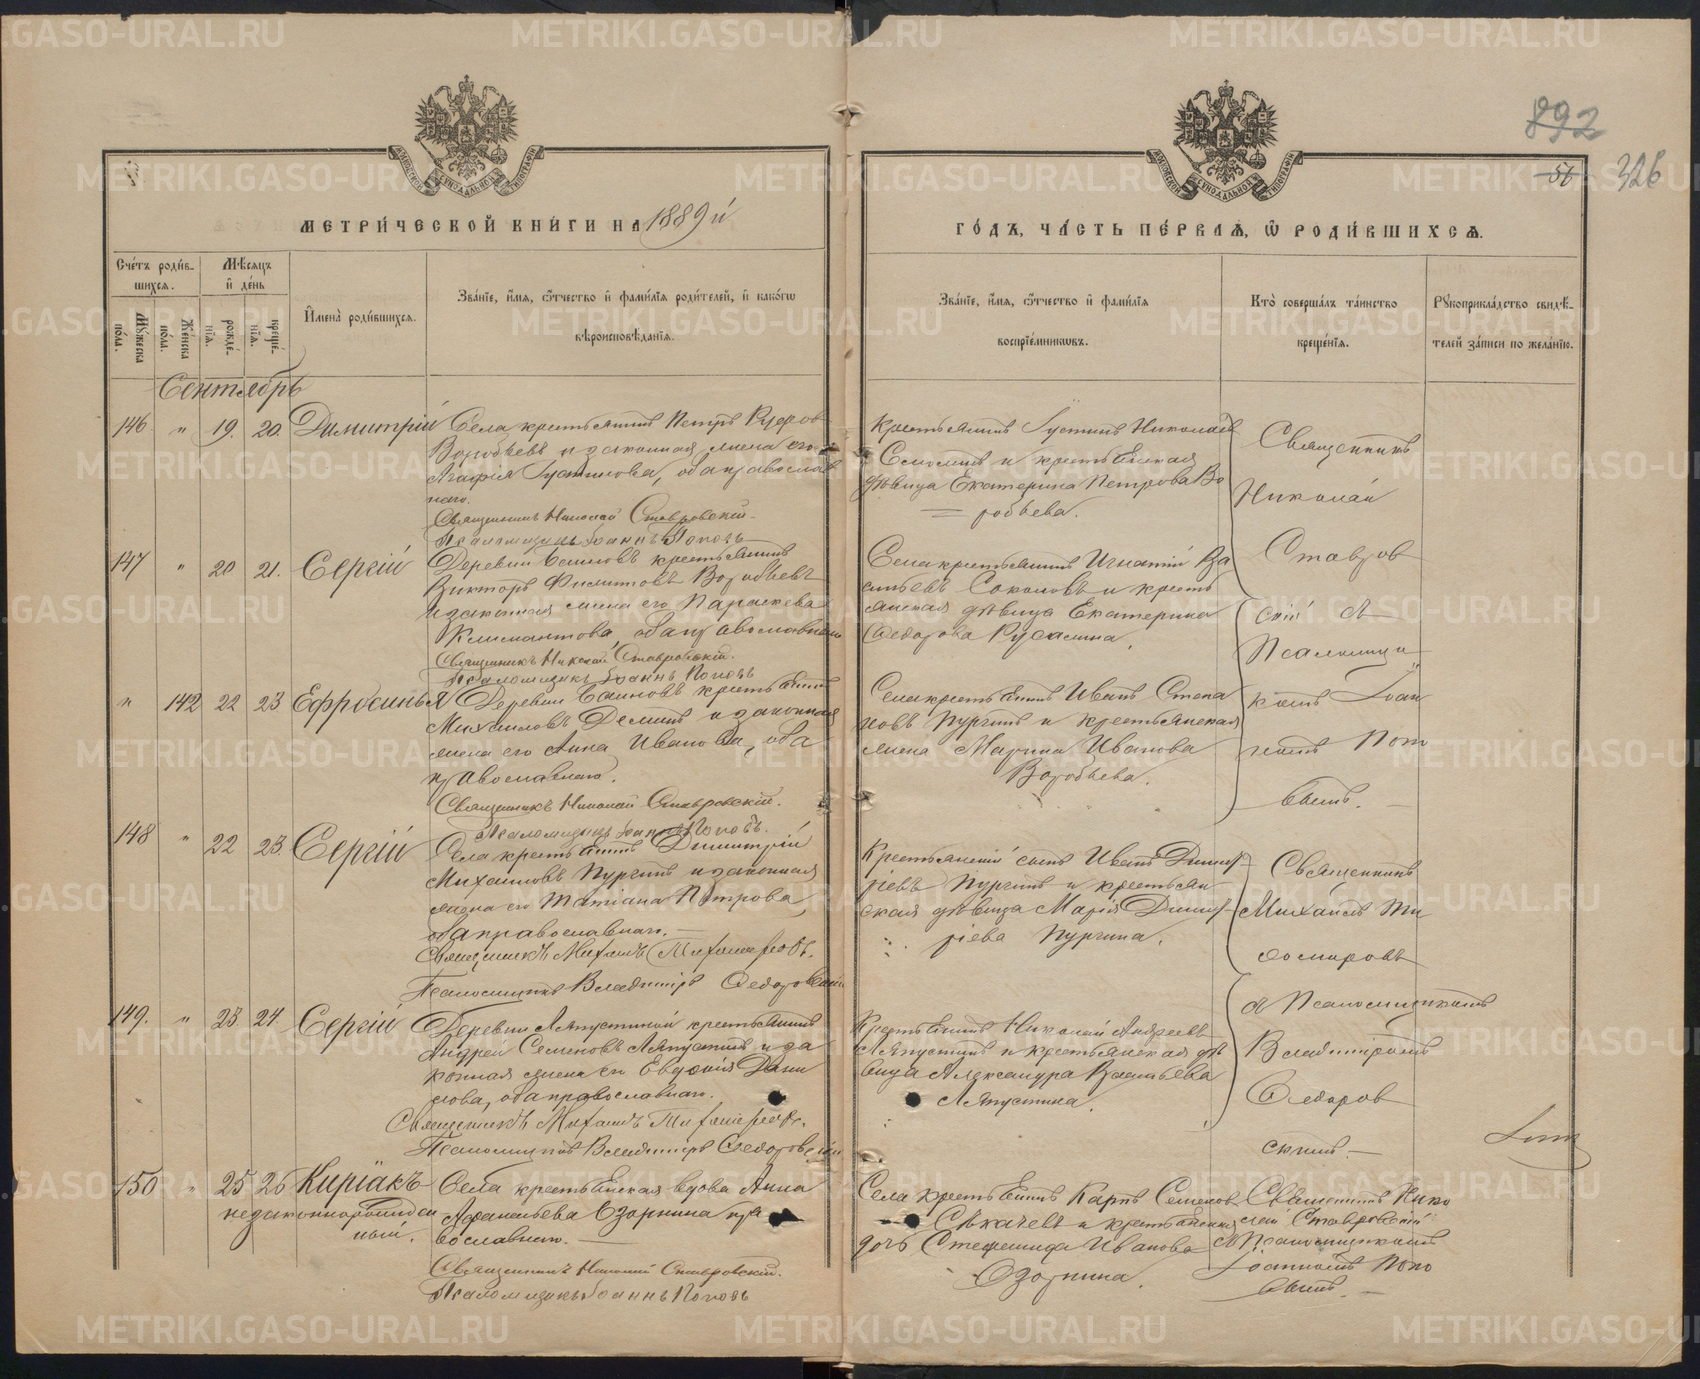 892
56
326
МЕТРИЧЕСКОЙ КНИГИ НА 1889й
ГОДЪ, ЧАСТЬ ПЕРВАЯ, Ѡ РОДИВШИХСЯ.
Счетъ родив-
шихся.
Мужеска пола.
Женска пола.
Мѣсяцъ
и день
рожденія.
крещенія.
Имена родившихся.
Званіе, имя, отчество и фамилія родителей, и какого
вѣроисповѣданія.
Званіе, имя, отчество и фамилія
воспріемниковъ.
Кто совершалъ таинство
крещенія.
Рукоприкладство свидѣ-
телей записи по желанію.
Сентябрь
146 " 19. 20. Димитрій
Села крестьянинъ Петръ
Воробьевъ и законная жена его
Агафія Іустинова, оба православ
наго.
Священникъ Николай Ставровскій
Псаломщикъ Іоаннъ Поповъ
Крестьянинъ Іустинъ Николаевъ
и крестьянская
дѣвица Екатерина Петрова Во
робьева.
Священникъ
Николай
Ставров
скій и
Псаломщи
комъ Іоан
номъ Попо
вымъ.
147 " 20 21. Сергій
Деревни крестьянинъ
Викторъ Филиповъ Воробьевъ
и законная жена его Параскева
Климантова, оба православнаго
Священникъ Николай Ставровскій.
Псаломщикъ Іоаннъ Поповъ
Села крестьянинъ Игнатій Ва
сильевъ Соколовъ и кресть
янская дѣвица Екатерина
Ѳедорова Русакина.
" 142 22 23 Ефросинья
Деревни крестьянинъ
Михаиловъ и законная
жена его Анна Иванова, оба
православнаго.
Священникъ Николай Ставровскій.
Псаломщикъ Іоаннъ Поповъ.
Села крестьянинъ Иванъ Степа
новъ Пургинъ и крестьянская
жена Марина Иванова
Воробьева.
148 " 22 23 Сергій
Села крестьянинъ Димитрій
Михаиловъ Пургинъ и законная
жена его Татіана Петрова,
оба православнаго.
Священникъ Михаилъ
Псаломщикъ Владиміръ Ѳедоровскій
Крестьянскій сынъ Иванъ Димит
ріевъ Пургинъ и крестьян
ская дѣвица Марія Димит
ріева Пургина.
Священникъ
Михаилъ
и Псаломщикомъ
Владиміромъ
Ѳедоров
скимъ.
149. " 23. 24. Сергій
Деревни Ляпустиной крестьянинъ
Андрей Семеновъ Ляпустинъ и за
конная жена его Евдокія Дани
лова, оба православнаго.
Священникъ Михаилъ
Псаломщикъ Владиміръ Ѳедоровскій
Крестьянинъ Николай Андреевъ
Ляпустинъ и крестьянская дѣ
вица Александра Васильева
Ляпустина.
150 " 25 26 Киріакъ
незаконнорожден
ный.
Села крестьянская вдова Анна
Афанасьева Озорнина пра
вославнаго.
Священникъ Николай Ставровскій.
Псаломщикъ Іоаннъ Поповъ
Села крестьянинъ Карпъ Семенов
Сѣкачевъ и крестьянская
дочь Стефанида Иванова
Озорнина.
Священникъ Нико
лай Ставровскій
и Псаломщикомъ
Іоанномъ Попо
вымъ.
METRIKI.GASO-URAL.RU